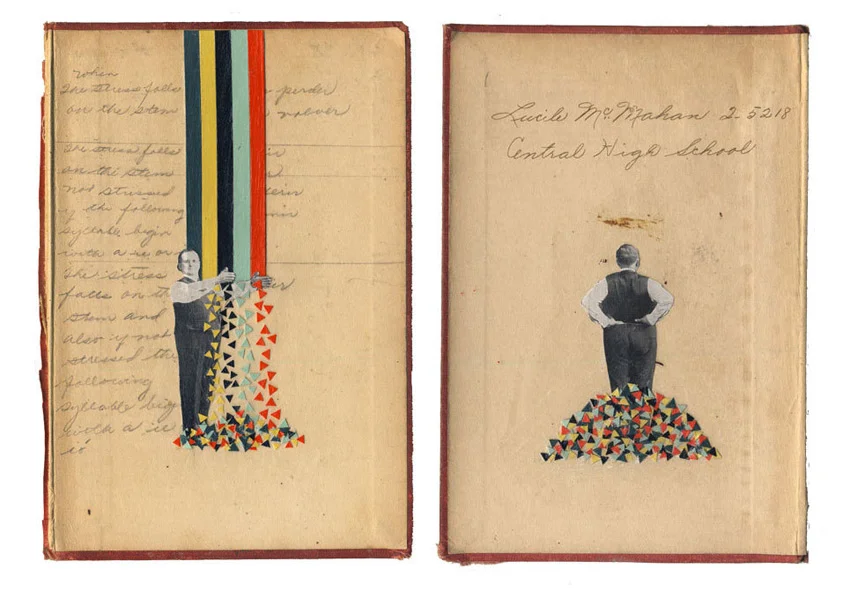 when
The stress falls perder
on the stem volver
The stress falls
on the stem
not stressed
y the following
syllable begin
with a ie or
The stress
falls on th
stem and
also y not
stressed the
following
syllable beg
with a ie
Lucile McMahan 2-5218
Central High School